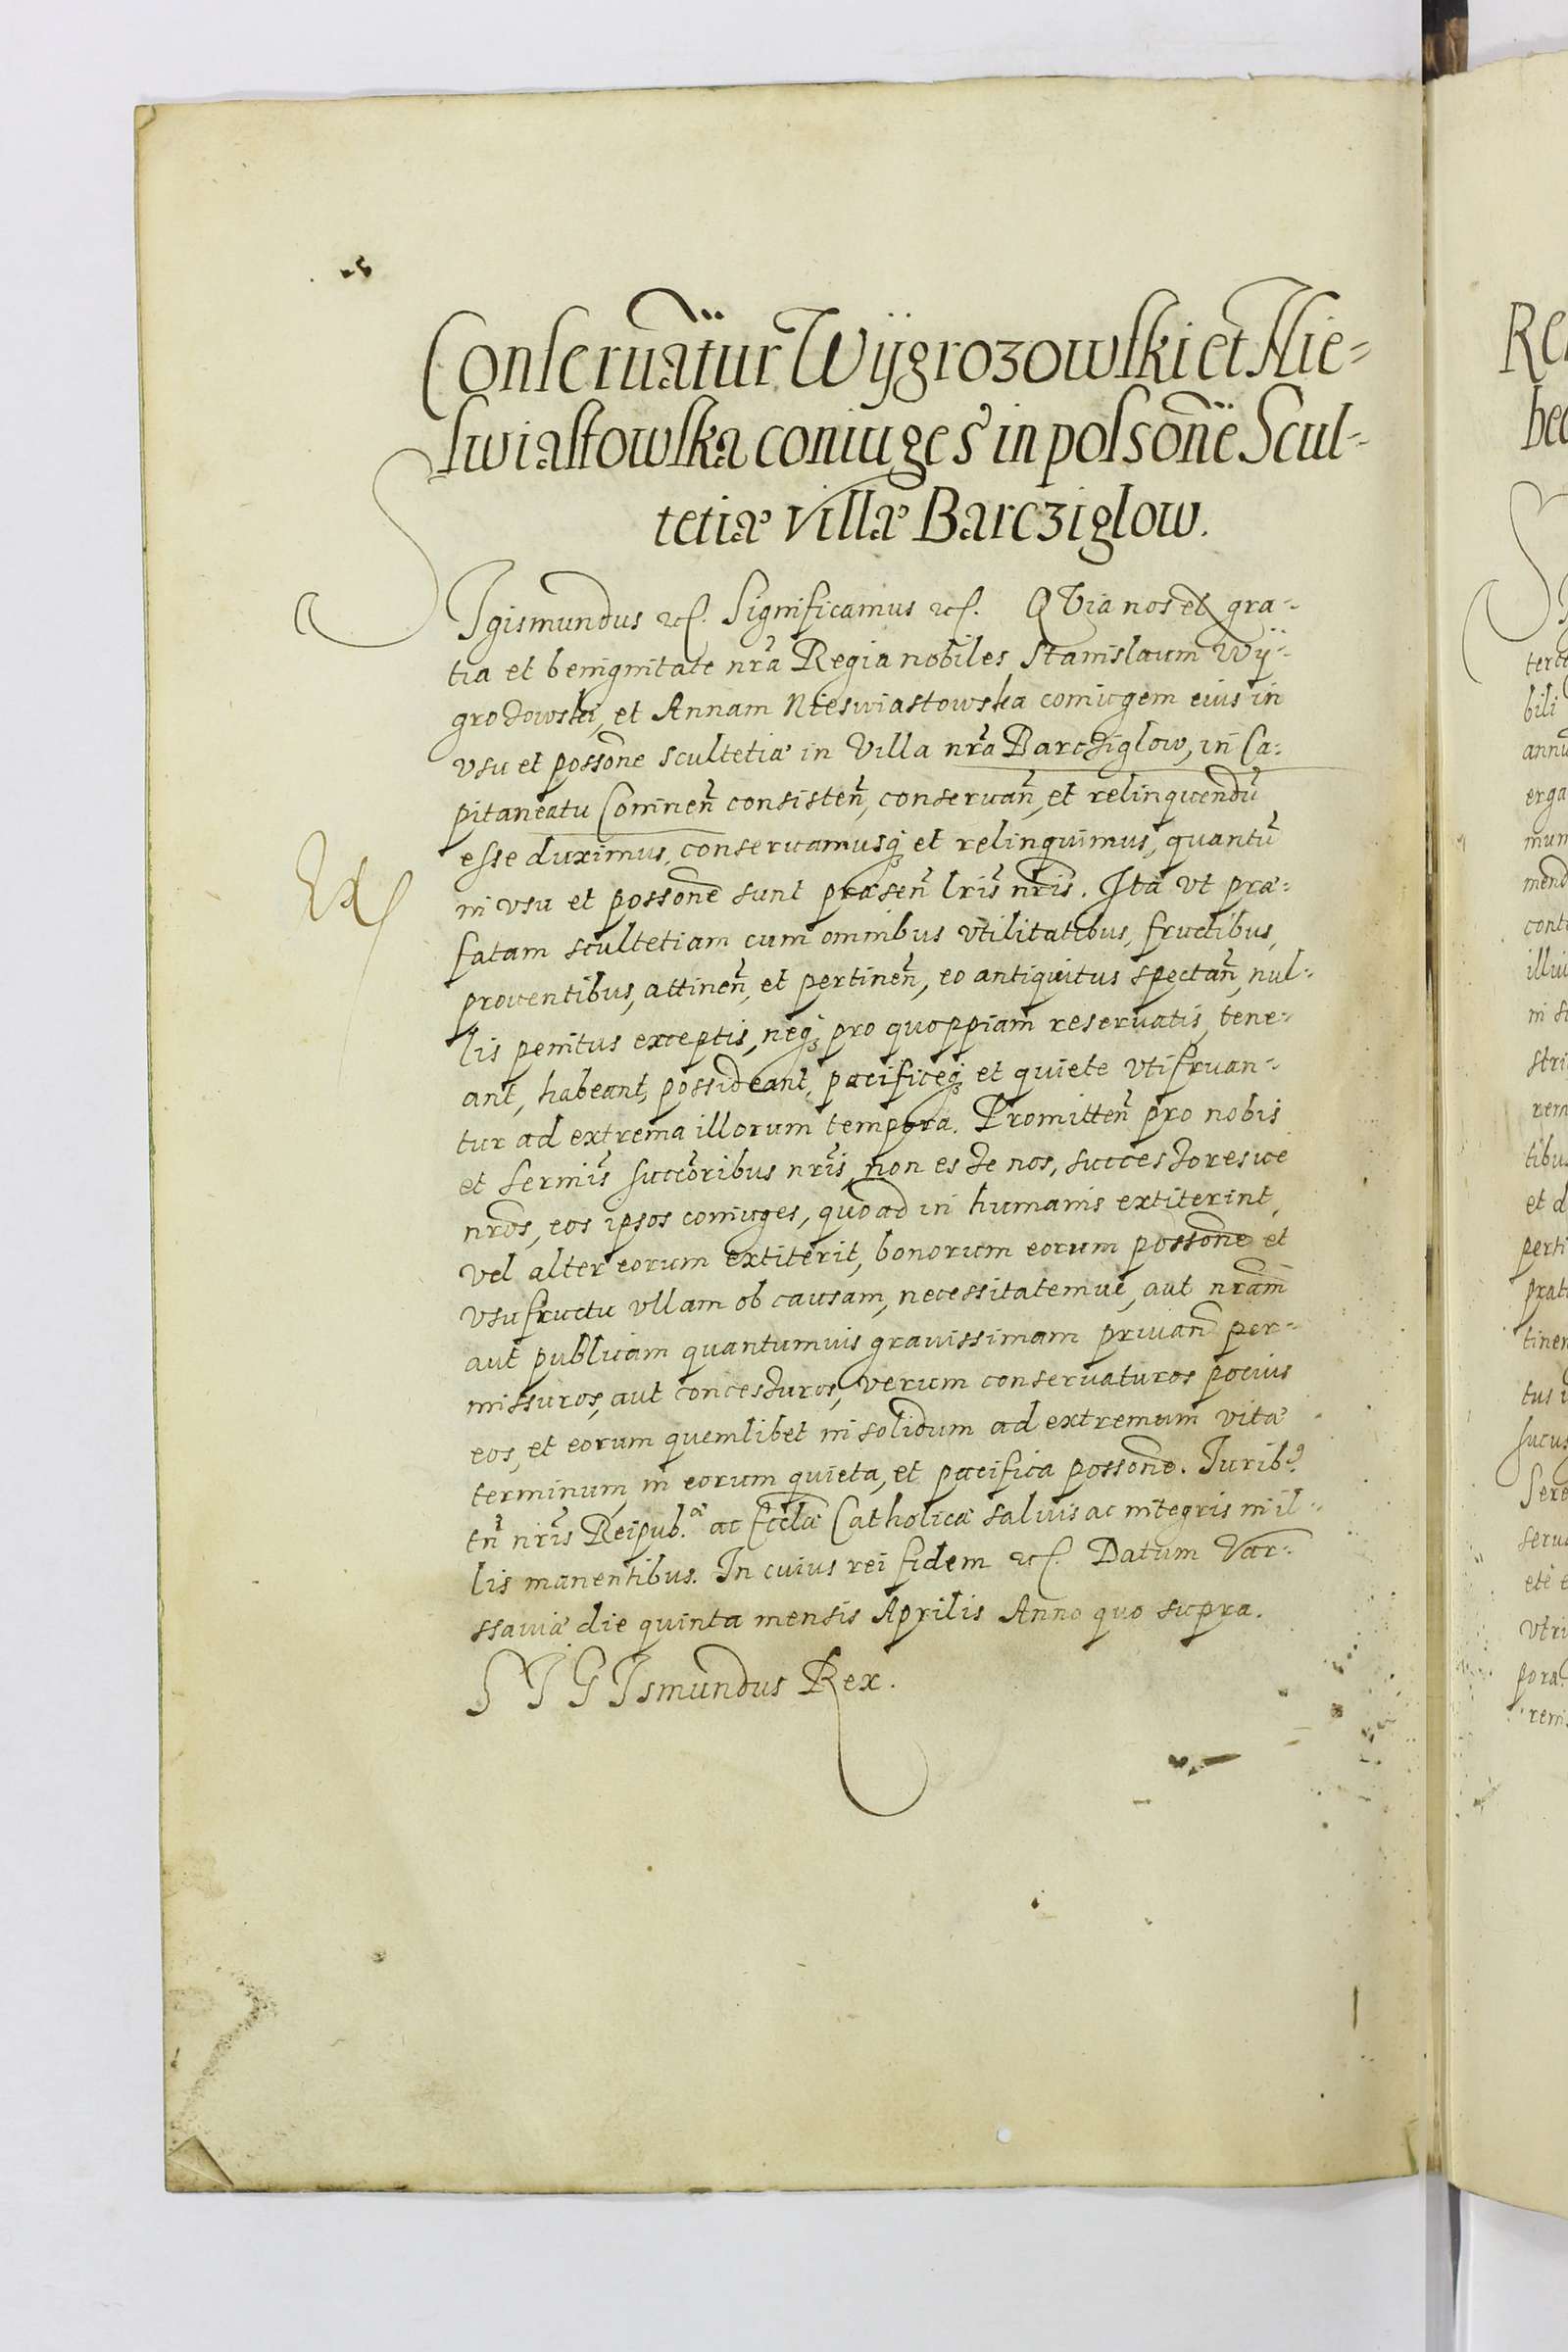 Conseruantur Wÿgrozowski et Nie=
swiastowska coniuges in possone Scul=
tetiæ Villæ Barcziglow.
SIgismundus etc. Significamus etc. QVia nos ex gra=
tia et benignitate nra Regia nobiles Stanislaum Wÿ=
grodowski, et Annam Nieswiastowska coniugem eius in
vsu et possone scultetiæ in Villa nra Barcziglow, in Ca=
pitaneatu Coninen consisten, conseruan, et relinquendu
esse duximus, conseruamusq et relinquimus, quantu
in vsu et possone sunt præsen lris nris. Ita vt præ=
fatam scultetiam cum omnibus vtilitatibus, fructibus,
prouentibus, attinen, et pertinen, eo antiquitus spectan, nul=
lis penitus exceptis, neq pro quoppiam reseruatis, tene=
ant, habeant, possideant, pacificeq et quiete vtifruan=
tur ad extrema illorum tempora. Promitten pro nobis
et sermis succoribus nris, non es de nos, successoresue
nros, eos ipsos coniuges, quoad in humanis extiterint,
vel alter eorum extiterit, bonorum eorum possone et
vsufructu vllam ob causam, necessitatemue, aut nram
aut publicam quantumuis grauissimam priuand per=
missuros, aut concessuros, verum conseruaturos pocius
eos, et eorum quemlibet in solidum ad extremum vitæ
terminum, in eorum quieta, et pacifica possone. Iurib9
tn nris Reipub.æ ac Ecclæ Catholicæ saluis ac integris in il=
lis manentibus. In cuius rei fidem etc. Datum Var=
ssauiæ die quinta mensis Aprilis Anno quo supra.
SIGIsmundus Rex.